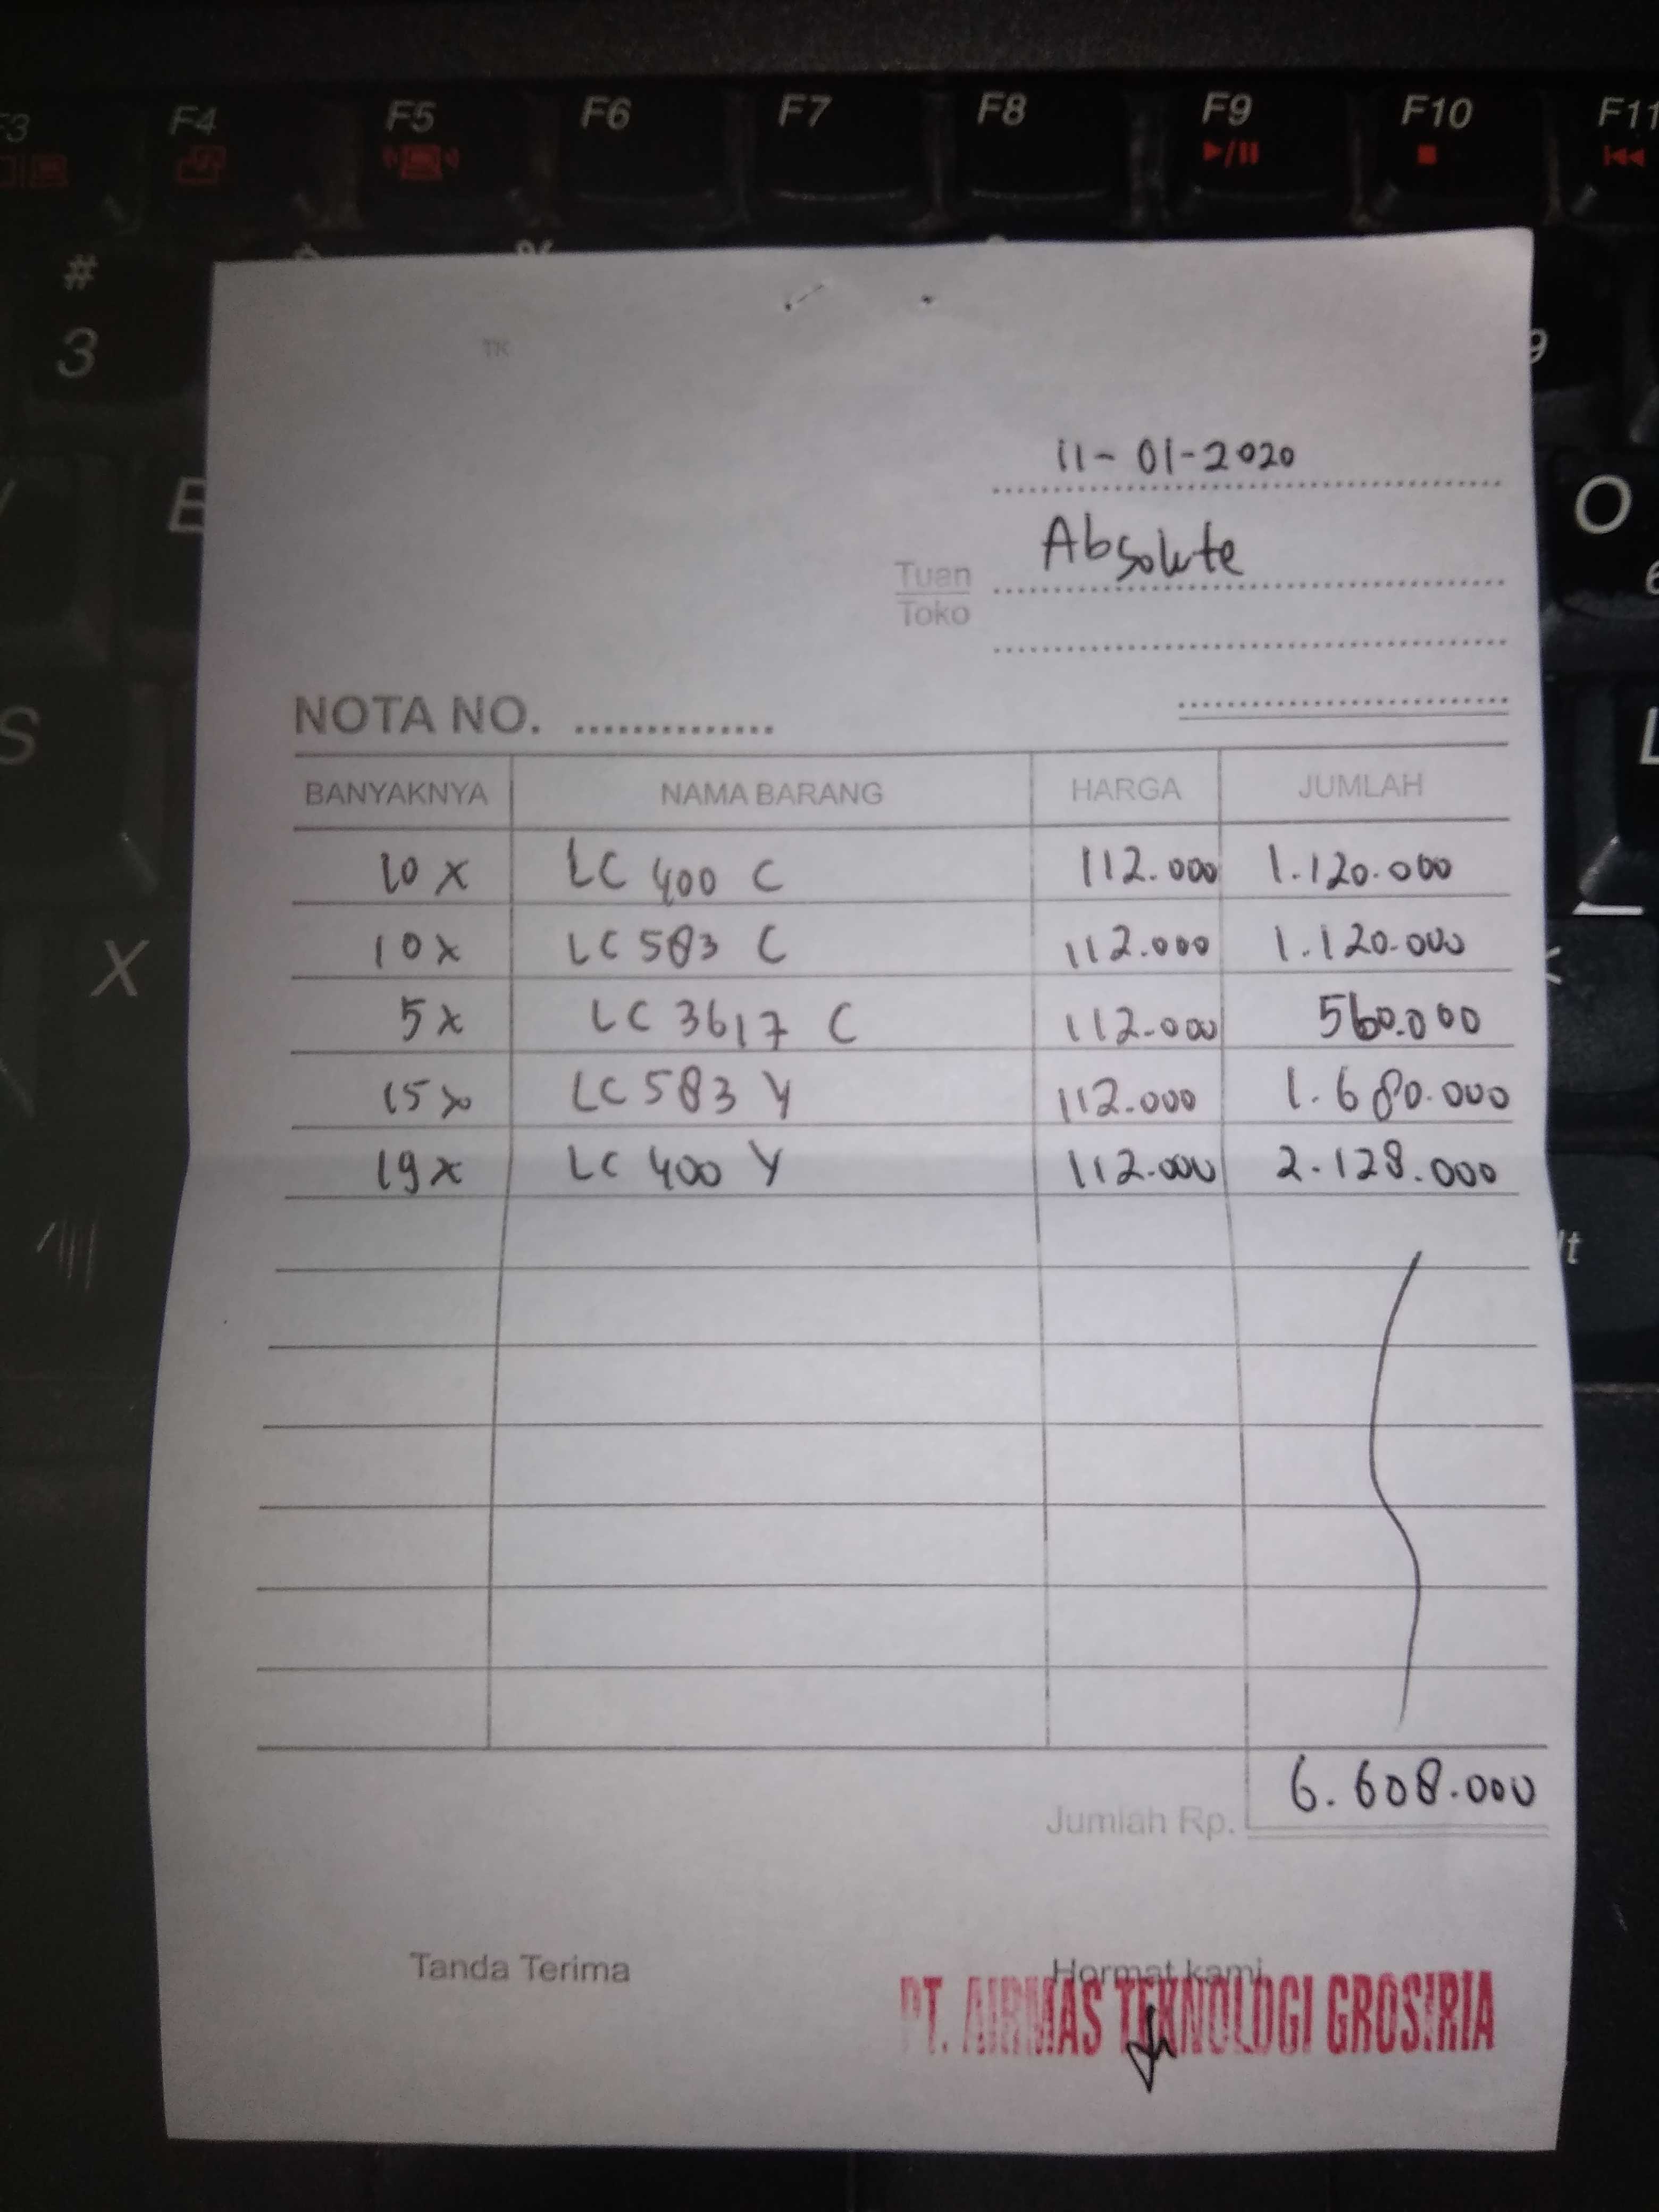 F3 F4 F5 F6 F7 F8 F9 F10 F11
#
3 9
TK
11-01-2020
E O
Absolute
Tuan
Toko
S L
NOTA NO. ..............
BANYAKNYA NAMA BARANG HARGA JUMLAH
10 x LC 400 C 112.000 1.120.000
10 x LC 583 C 112.000 1.120.000
X
5 x LC 3617 C 112.000 560.000
15 x LC 583 Y 112.000 1.680.000
19 x LC 400 Y 112.000 2.128.000
6.608.000
Jumlah Rp.
Tanda Terima Hormat kami
PT. AIRMAS TEKNOLOGI GROSIRIA